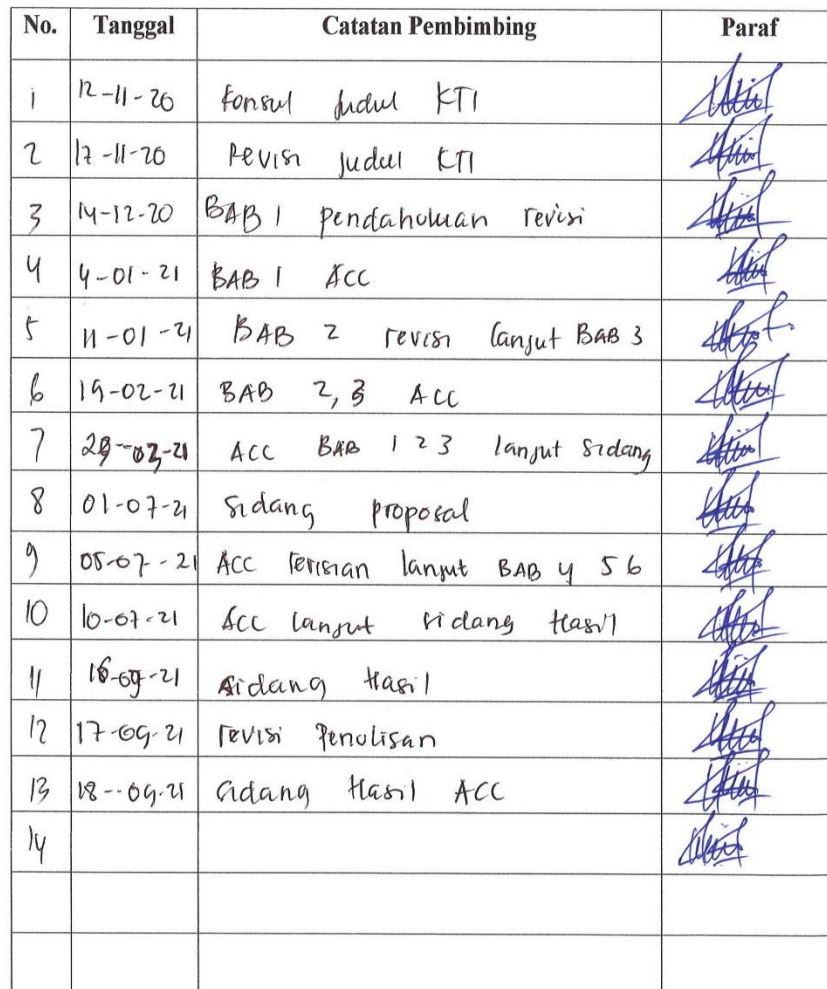 No. Tanggal Catatan Pembimbing Paraf
1 12-11-20 Konsul Judul KTI
2 17-11-20 Revisi Judul KTI
3 14-12-20 BAB 1 pendahuluan revisi
4 4-01-21 BAB 1 ACC
5 11-01-21 BAB 2 revisi lanjut BAB 3
6 19-02-21 BAB 2, 3 ACC
7 ACC BAB 1 2 3 lanjut sidang
8 01-07-21 Sidang proposal
9 05-07-21 ACC revisian lanjut BAB 4 5 6
10 10-07-21 ACC lanjut sidang Hasil
11 16-09-21 sidang Hasil
12 17-09-21 revisi Penulisan
13 18-09-21 sidang Hasil ACC
14